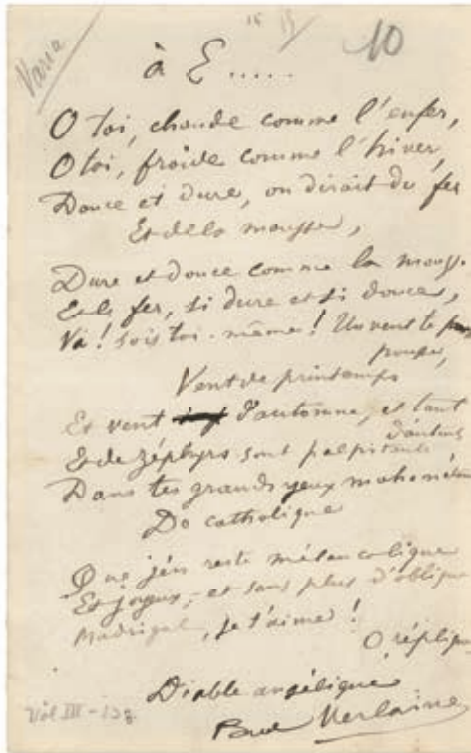 Varia
15 15 10
à E.....
O toi, chaude comme l'enfer,
O toi, froide comme l'hiver,
Douce et dure, on dirait du fer
Et de la mousse,
Dure et douce comme la mousse
Et le fer, si dure et si douce,
Va! sois toi-même! Un vent te
pousse,
Vent de printemps
Et vent d'automne, et tant
d'autans
Et de zéphyrs sont palpitants
Dans tes grands yeux mahométans
De catholique
Que j'en reste mélancolique
Et joyeux, - et sans plus d'oblique
Madrigal, je t'aime!
O réplique
Diable angélique
Paul Verlaine
Vol III - 138